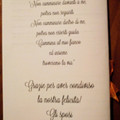 "Non camminare davanti a me,
potrei non seguirti.
Non camminare dietro di me,
potrei non esserti guida.
Cammina al mio fianco
ed insieme
troveremo la via."
Grazie per aver condiviso
la nostra felicità!
Gli sposi